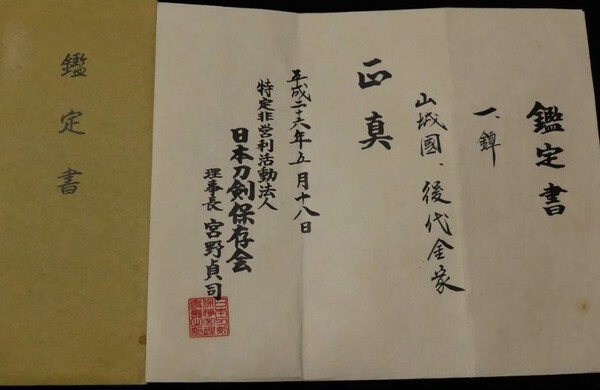 鑑定書
一、鐔
山城國、後代金家
正真
平成二十六年五月十八日
特定非営利活動法人
日本刀剣保存会
理事長 宮野貞司
鑑定書